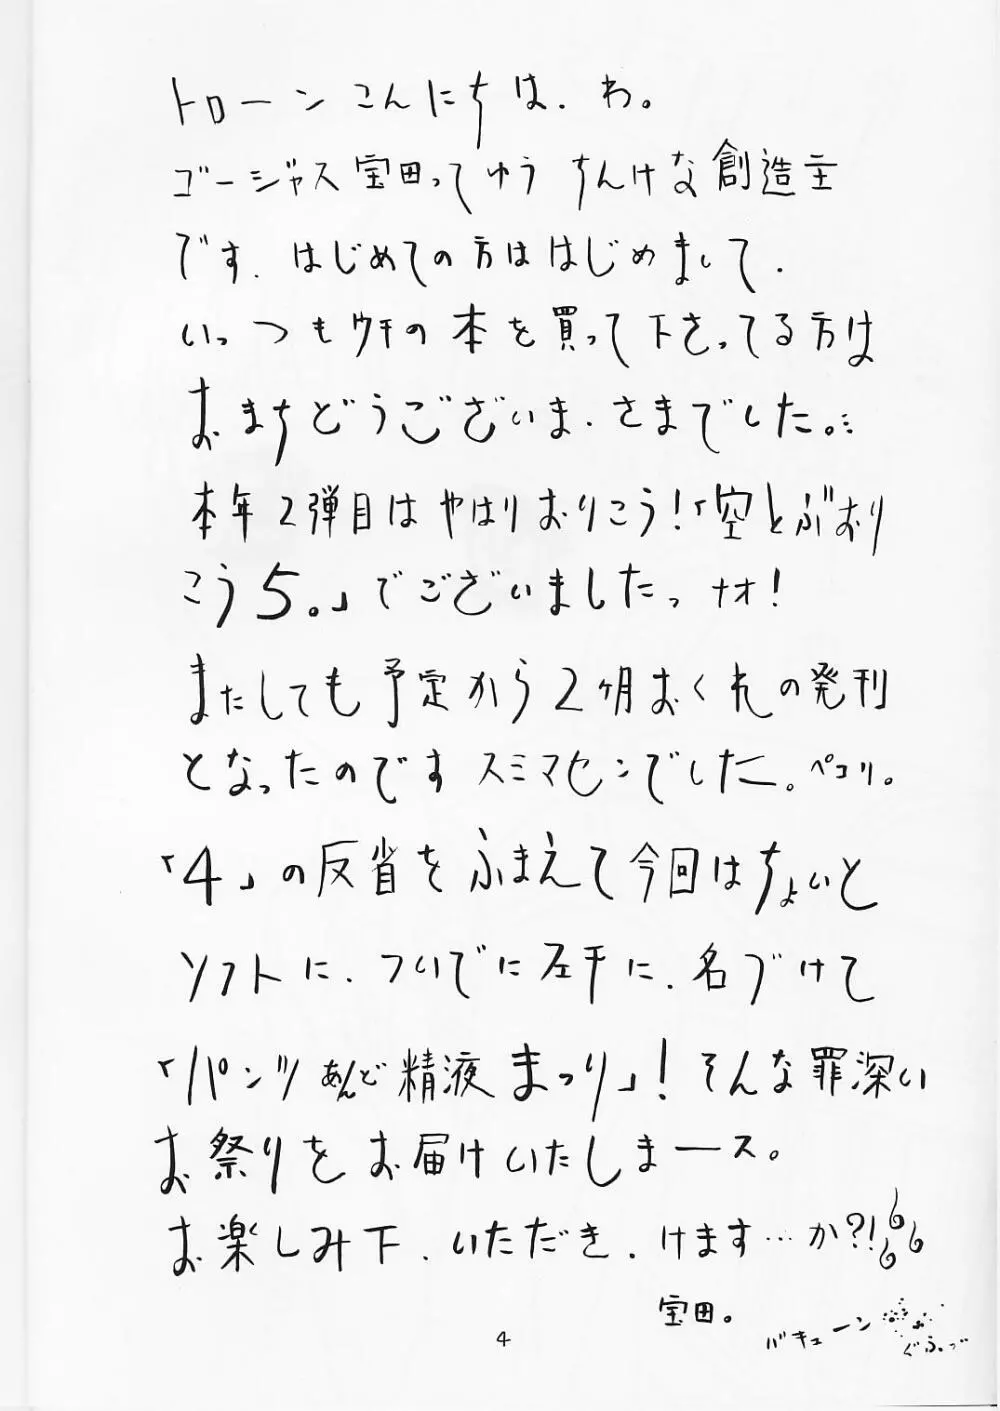 トローンこんにちは、わ。
ゴージャス宝田ってゆうちんけな創造主
です、はじめての方ははじめまして、
いっつもウチの本を買って下さってる方は
おまちどうございま、さまでした。
本年2弾目はやはりおりこう!「空とぶおり
こう5。」でございましたっ ナオ!
またしても予定から2ヶ月おくれの発刊
となったのです スミマセンでした。ペコリ。
「4」の反省をふまえて今回はちょいと
ソフトに、ついでに左手に、名づけて
「パンツあんど精液まつり」!そんな罪深い
お祭りをお届けいたしまース。
お楽しみ下、いただき、けます…か?!
宝田。
バキューン
ぐふっ
4